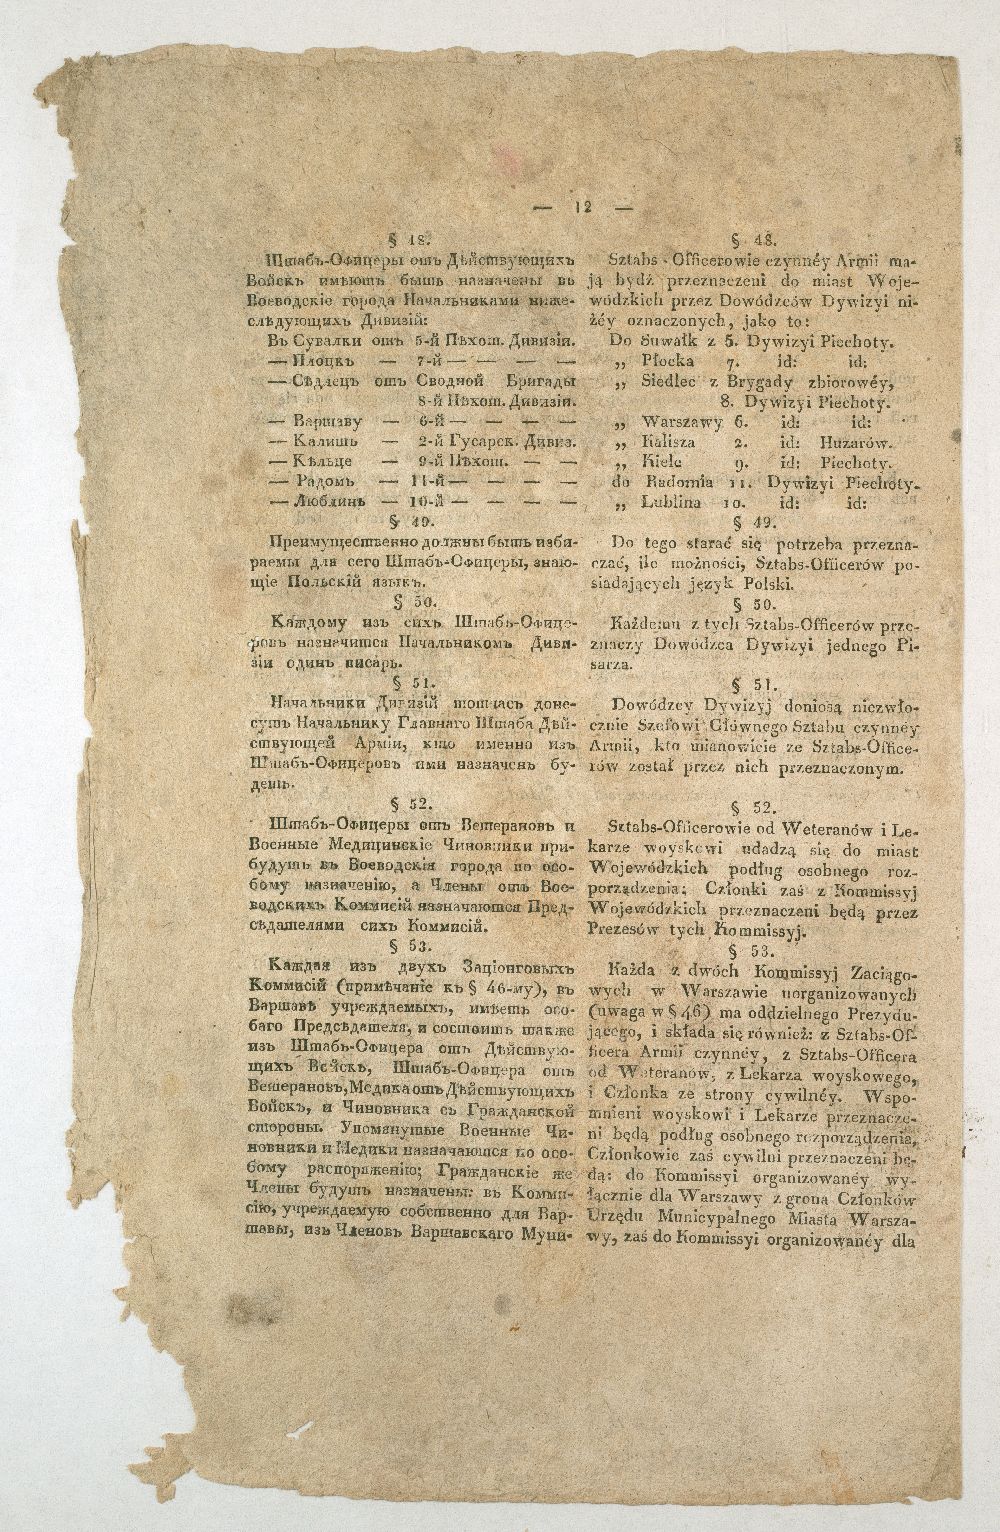 — 12 —
§ 48.
Штабъ-Офицеры отъ Дѣйствующихъ
Войскъ имѣютъ быть назначены въ
Воеводскіе города Начальниками ниже-
слѣдующихъ Дивизій:
Въ Сувалки отъ 5-й Пѣхот. Дивизіи.
— Плоцкъ — 7-й — — — —
— Сѣдлецъ отъ Сводной Бригады
8-й Пѣхот. Дивизіи.
— Варшаву — 6-й — — — —
— Калишъ — 2-й Гусарск. Дивиз.
— Кѣльце — 9-й Пѣхот. — —
— Радомъ — 11-й — — — —
— Люблинъ — 10-й — — — —
§ 49.
Преимущественно должны быть изби-
раемы для сего Штабъ-Офицеры, знаю-
щіе Польскій языкъ.
§ 50.
Каждому изъ сихъ Штабъ-Офице-
ровъ назначится Начальникомъ Диви-
зіи одинъ писарь.
§ 51.
Начальники Дивизій тотчасъ доне-
сутъ Начальнику Главнаго Штаба Дѣй-
ствующей Арміи, кто именно изъ
Штабъ-Офицеровъ ими назначенъ бу-
детъ.
§ 52.
Штабъ-Офицеры отъ Ветерановъ и
Военные Медицинскіе Чиновники при-
будутъ въ Воеводскія города по осо-
бому назначенію, а Члены отъ Вое-
водскихъ Коммисій назначаются Пред-
сѣдателями сихъ Коммисій.
§ 53.
Каждая изъ двухъ Заціонговыхъ
Коммисій (примѣчаніе къ § 46-му), въ
Варшавѣ учреждаемыхъ, имѣетъ осо-
баго Предсѣдателя, и состоитъ также
изъ Штабъ-Офицера отъ Дѣйствую-
щихъ Войскъ, Штабъ-Офицера отъ
Ветерановъ, Медика отъ Дѣйствующихъ
Войскъ, и Чиновника съ Гражданской
стороны. Упомянутые Военные Чи-
новники и Медики назначаются по осо-
бому распоряженію; Гражданскіе же
Члены будутъ назначены: въ Комми-
сію, учреждаемую собственно для Вар-
шавы, изъ Членовъ Варшавскаго Муни-
§ 48.
Sztabs-Officerowie czynnéy Armii ma-
ją bydź przeznaczeni do miast Woje-
wódzkich przez Dowódzców Dywizyi ni-
żéy oznaczonych, jako to:
Do Suwałk z 5. Dywizyi Piechoty.
„ Płocka 7. id: id:
„ Siedlec z Brygady zbiorowéy,
8. Dywizyi Piechoty.
„ Warszawy 6. id: id:
„ Kalisza 2. id: Huzarów.
„ Kielc 9. id: Piechoty.
do Radomia 11. Dywizyi Piechoty.
„ Lublina 10. id: id:
§ 49.
Do tego starać się potrzeba przezna-
czać, ile możności, Sztabs-Officerów po-
siadających język Polski.
§ 50.
Każdemu z tych Sztabs-Officerów prze-
znaczy Dowódzca Dywizyi jednego Pi-
sarza.
§ 51.
Dowódzcy Dywizyj doniosą niezwło-
cznie Szefowi Głównego Sztabu czynnéy
Armii, kto mianowicie ze Sztabs-Office-
rów został przez nich przeznaczonym.
§ 52.
Sztabs-Officerowie od Weteranów i Le-
karze woyskowi udadzą się do miast
Wojewódzkich podług osobnego roz-
porządzenia; Członki zaś z Kommissyj
Wojewódzkich przeznaczeni będą przez
Prezesów tych Kommissyj.
§ 53.
Każda z dwóch Kommissyj Zaciągo-
wych w Warszawie uorganizowanych
(uwaga w § 46) ma oddzielnego Prezydu-
jącego, i składa się również: z Sztabs-Of-
ficera Armii czynnéy, z Sztabs-Officera
od Weteranów, z Lekarza woyskowego,
i Członka ze strony cywilnéy. Wspo-
mnieni woyskowi i Lekarze przeznacze-
ni będą podług osobnego rozporządzenia,
Członkowie zaś cywilni przeznaczeni bę-
dą: do Kommissyi organizowanéy wy-
łącznie dla Warszawy z grona Członków
Urzędu Municypalnego Miasta Warsza-
wy, zaś do Kommissyi organizowanéy dla